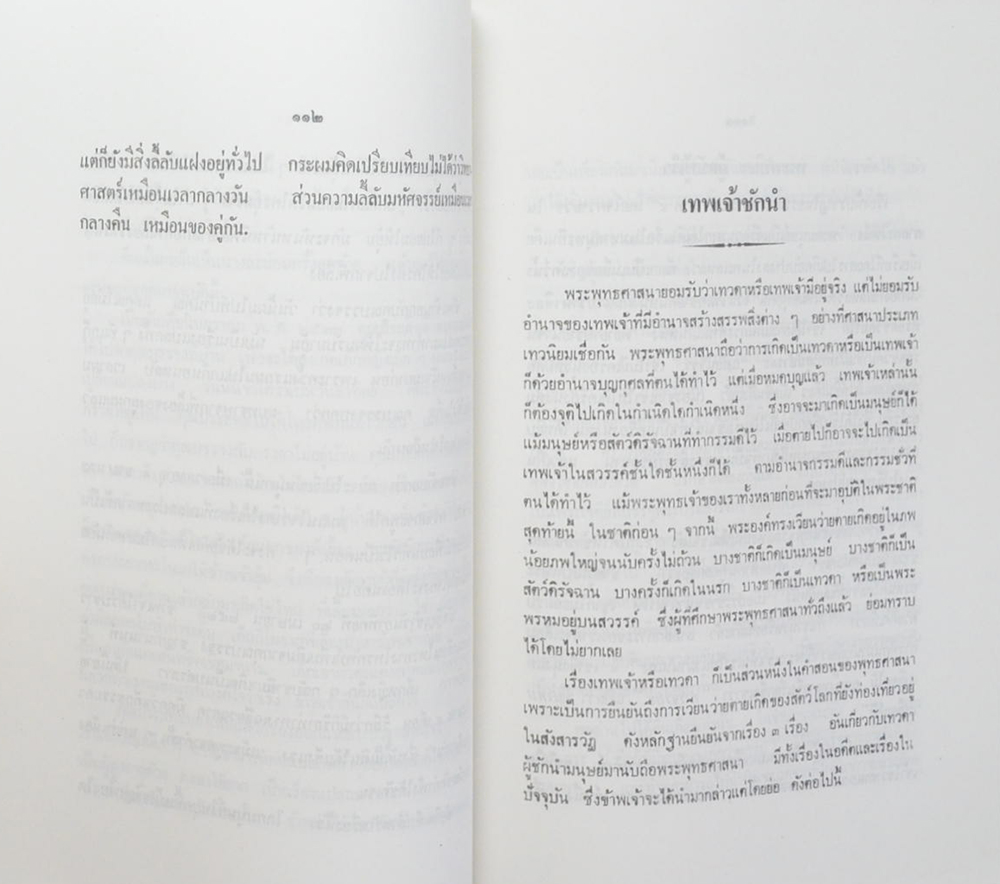 ๑๑๒
แต่ก็ยังมีสิ่งลี้ลับแฝงอยู่ทั่วไป กระผมคิดเปรียบเทียบไม่ได้ว่าวิทยา
ศาสตร์เหมือนเวลากลางวัน ส่วนความลี้ลับมหัศจรรย์เหมือนเวลา
กลางคืน เหมือนของคู่กัน.
เทพเจ้าชักนำ
พระพุทธศาสนายอมรับว่าเทวดาหรือเทพเจ้ามีอยู่จริง แต่ไม่ยอมรับ
อำนาจของเทพเจ้าที่มีอำนาจสร้างสรรพสิ่งต่าง ๆ อย่างที่ศาสนาประเภท
เทวนิยมเชื่อกัน พระพุทธศาสนาถือว่าการเกิดเป็นเทวดาหรือเป็นเทพเจ้า
ก็ด้วยอำนาจบุญกุศลที่ตนได้ทำไว้ แต่เมื่อหมดบุญแล้ว เทพเจ้าเหล่านั้น
ก็ต้องจุติไปเกิดในกำเนิดใดกำเนิดหนึ่ง ซึ่งอาจจะมาเกิดเป็นมนุษย์ก็ได้
แม้มนุษย์หรือสัตว์ดิรัจฉานที่ทำกรรมดีไว้ เมื่อตายไปก็อาจจะไปเกิดเป็น
เทพเจ้าในสวรรค์ชั้นใดชั้นหนึ่งก็ได้ ตามอำนาจกรรมดีและกรรมชั่วที่
ตนได้ทำไว้ แม้พระพุทธเจ้าของเราทั้งหลายก่อนที่จะมาอุบัติในพระชาติ
สุดท้ายนี้ ในชาติก่อน ๆ จากนี้ พระองค์ทรงเวียนว่ายตายเกิดอยู่ในภพ
น้อยภพใหญ่จนนับครั้งไม่ถ้วน บางชาติก็เกิดเป็นมนุษย์ บางชาติก็เป็น
สัตว์ดิรัจฉาน บางครั้งก็เกิดในนรก บางชาติก็เป็นเทวดา หรือเป็นพระ
พรหมอยู่บนสวรรค์ ซึ่งผู้ที่ศึกษาพระพุทธศาสนาทั่วถึงแล้ว ย่อมทราบ
ได้โดยไม่ยากเลย
เรื่องเทพเจ้าหรือเทวดา ก็เป็นส่วนหนึ่งในคำสอนของพุทธศาสนา
เพราะเป็นการยืนยันถึงการเวียนว่ายตายเกิดของสัตว์โลกที่ยังท่องเที่ยวอยู่
ในสังสารวัฏ ดังหลักฐานยืนยันจากเรื่อง ๓ เรื่อง อันเกี่ยวกับเทวดา
ผู้ชักนำมนุษย์มานับถือพระพุทธศาสนา มีทั้งเรื่องในอดีตและเรื่องใน
ปัจจุบัน ซึ่งข้าพเจ้าจะได้นำมากล่าวแต่โดยย่อ ดังต่อไปนี้